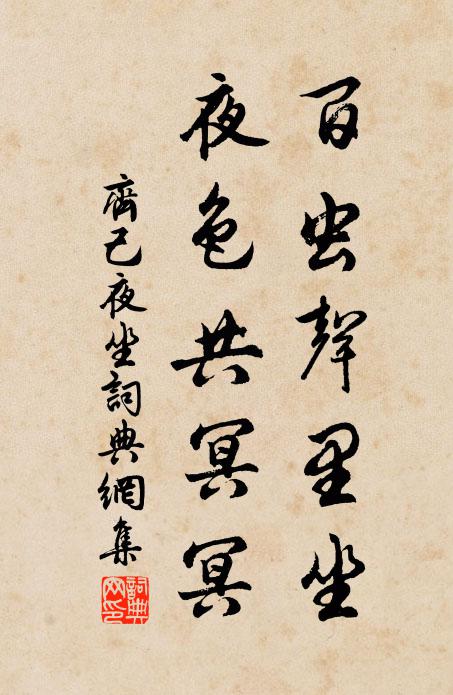 百虫聲里坐
夜色共冥冥
齊己夜坐詞典網集
詞典網印